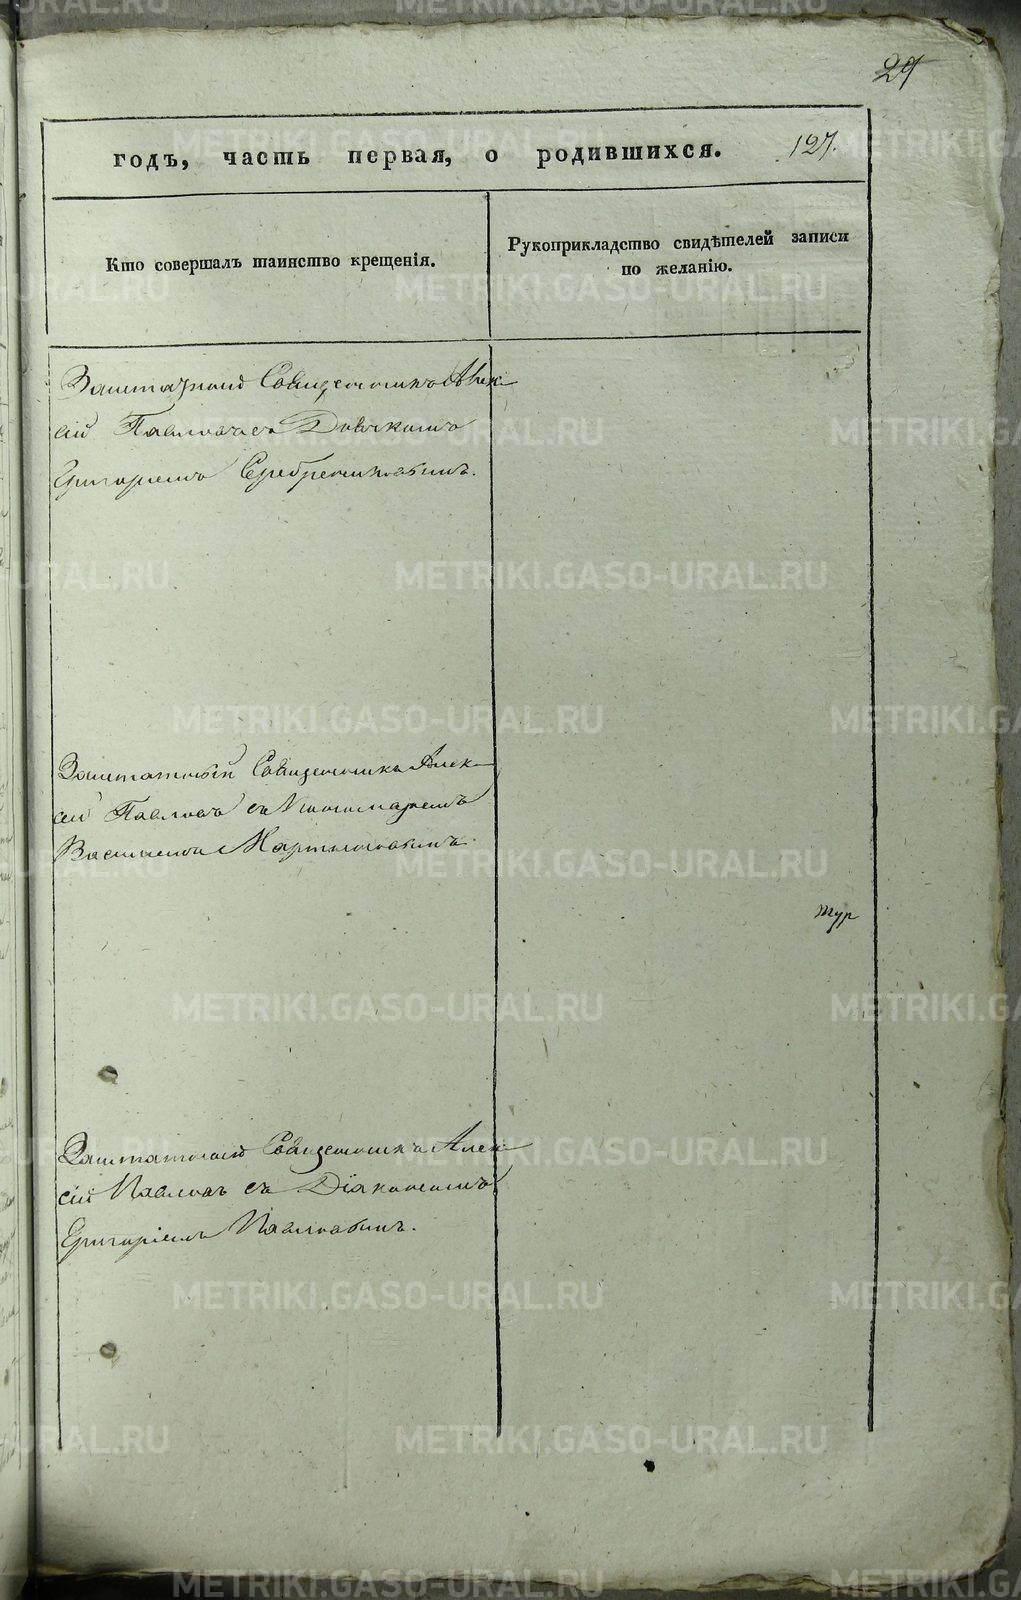 29
годъ, часть первая, о родившихся. 127.
Кто совершалъ таинство крещенія.
Рукоприкладство свидѣтелей записи
по желанію.
Заштатной Священникъ Алек
сій Павловъ съ Дьячкомъ
Григорьемъ Серебрениковымъ.
Заштатный Священникъ Алек
сій Павловъ съ Пономаремъ
Васильемъ Мартыновымъ
Заштатной Священникъ Алек
сій Павловъ съ Діакономъ
Григоріемъ Павловымъ.
METRIKI.GASO-URAL.RU